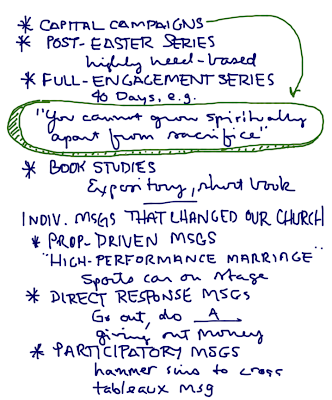 * CAPITAL CAMPAIGNS
* POST-EASTER SERIES
highly need-based
* FULL-ENGAGEMENT SERIES
40 Days, e.g.
"You cannot grow spiritually
apart from sacrifice"
* BOOK STUDIES
Expository, short book
INDIV. MSGS THAT CHANGED OUR CHURCH
* PROP-DRIVEN MSGS
"HIGH-PERFORMANCE MARRIAGE"
Sports car on stage
* DIRECT RESPONSE MSGS
Go out, do A
giving out money
* PARTICIPATORY MSGS
hammer sins to cross
tableaux msg